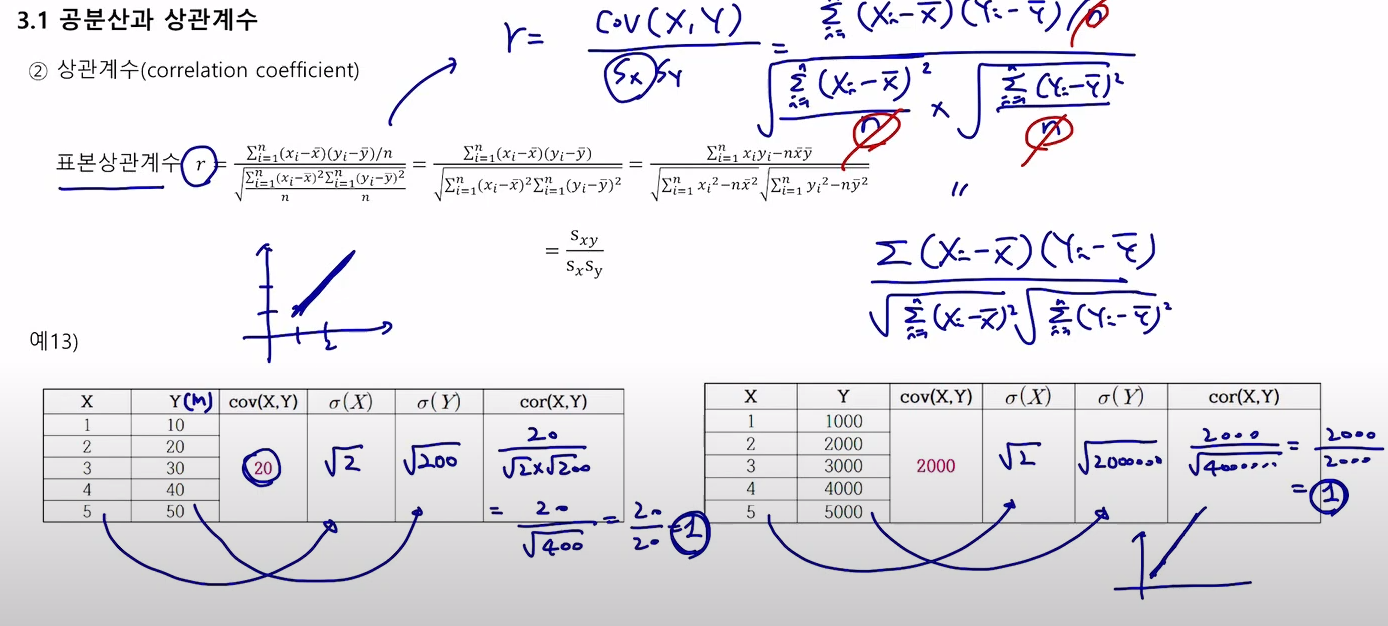 3.1 공분산과 상관계수
② 상관계수(correlation coefficient)
r = cov(X,Y) / (Sx Sy) = Σ(i=1..n) (Xi-X̄)(Yi-Ȳ)/n / (√(Σ(i=1..n) (Xi-X̄)² / n) × √(Σ(i=1..n) (Yi-Ȳ)² / n))
표본상관계수 r = (Σⁿᵢ₌₁(xᵢ-x̄)(yᵢ-ȳ)/n) / √(Σⁿᵢ₌₁(xᵢ-x̄)²/n Σⁿᵢ₌₁(yᵢ-ȳ)²/n) = Σⁿᵢ₌₁(xᵢ-x̄)(yᵢ-ȳ) / √(Σⁿᵢ₌₁(xᵢ-x̄)²Σⁿᵢ₌₁(yᵢ-ȳ)²) = (Σⁿᵢ₌₁ xᵢyᵢ-nx̄ȳ) / (√(Σⁿᵢ₌₁ xᵢ²-nx̄²) √(Σⁿᵢ₌₁ yᵢ²-nȳ²))
"
= s_xy / (s_x s_y)
Σ(Xi-X̄)(Yi-Ȳ) / (√(Σ(i=1..n) (Xi-X̄)²) √(Σ(i=1..n) (Yi-Ȳ)²))
2
예13)
X Y(M) cov(X,Y) σ(X) σ(Y) cor(X,Y)
1 10
2 20
3 30 20 √2 √200 20 / (√2×√200)
4 40
5 50 = 20/√400 = 20/20 = 1
X Y cov(X,Y) σ(X) σ(Y) cor(X,Y)
1 1000
2 2000
3 3000 2000 √2 √2000000 2000/√4000000 = 2000/2000
4 4000 = 1
5 5000